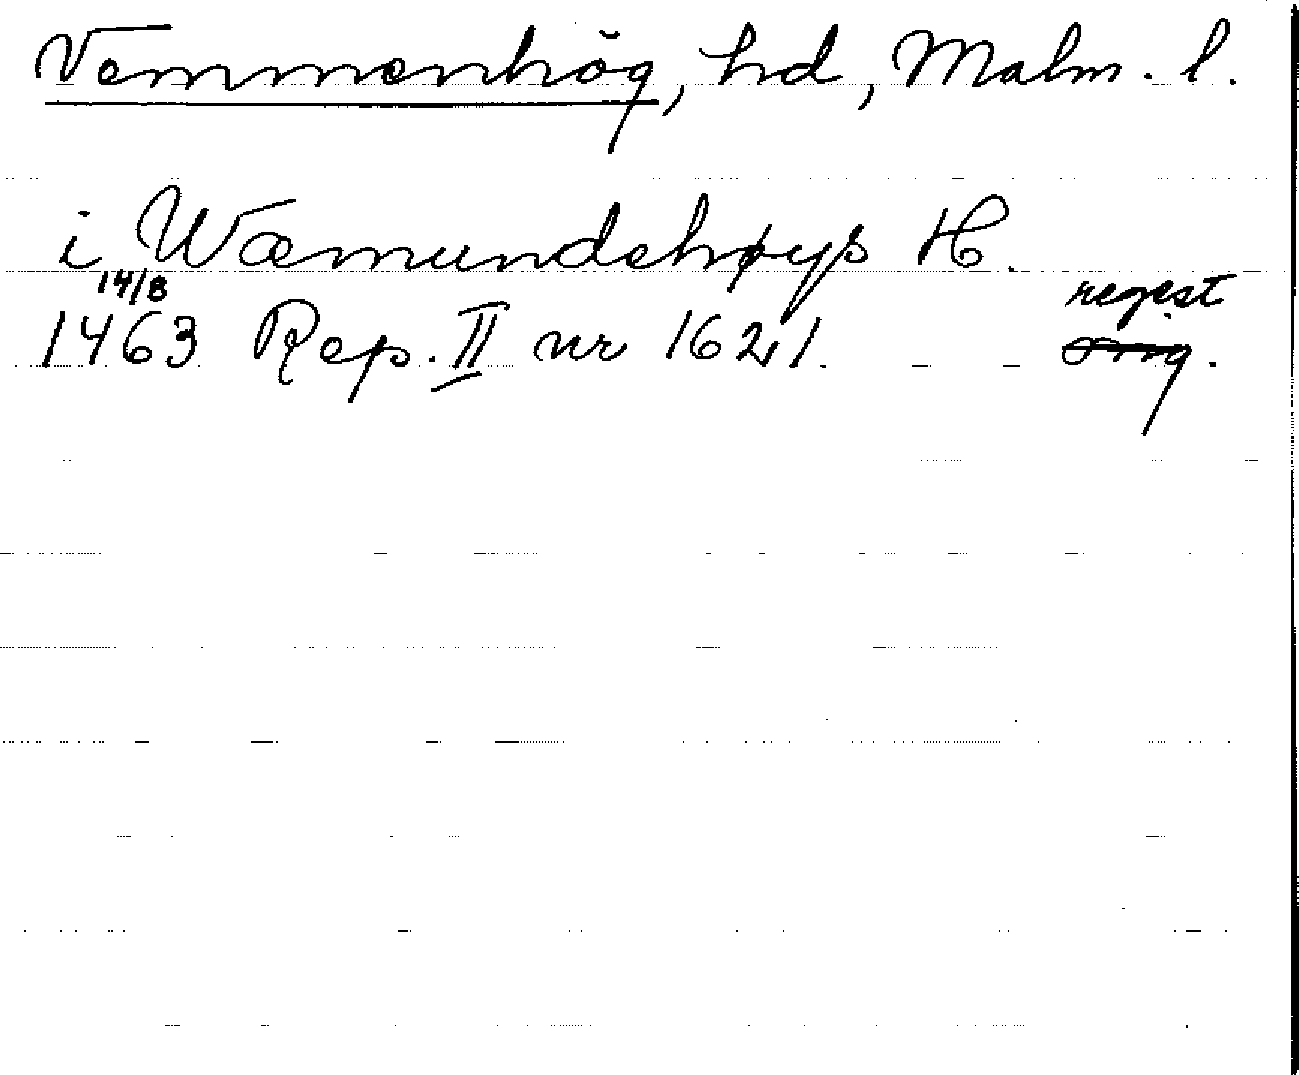 Vemmenhög, hd, Malm. l.
i Wæmundehøys H.
14/8 regest
1463 Rep. II nr 1621. omg.